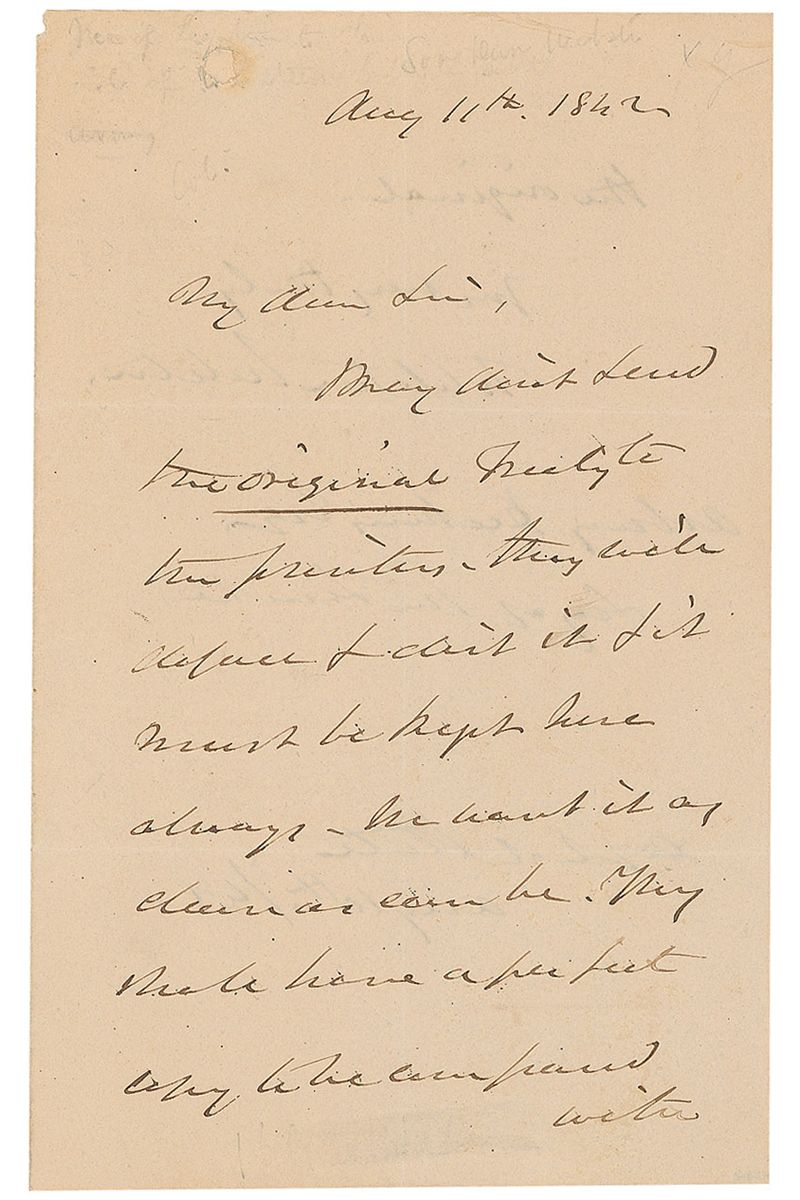 Aug 11th. 1842
My dear Sir,
Pray don't send
the original Treaty to
the printers - they will
deface & dirt it & it
must be kept here
always - We want it as
clean as can be. They
shall have a perfect
copy to be compared
with
the original.